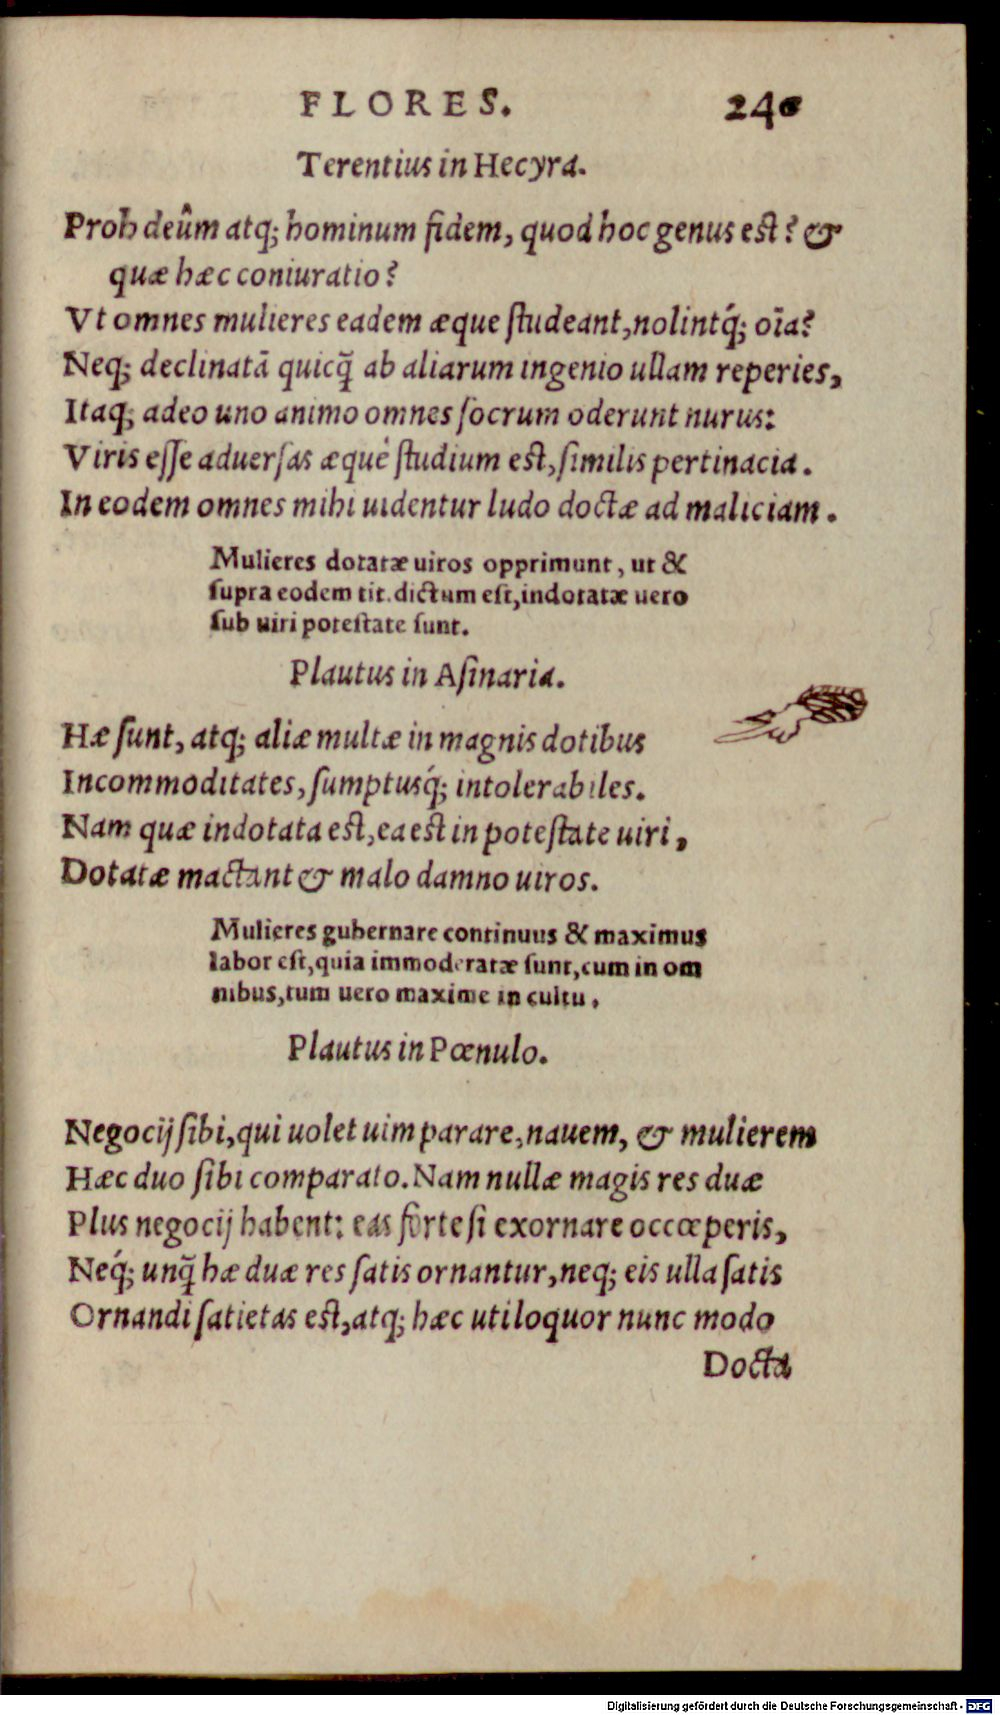 FLORES. 240
Terentius in Hecyra.
Proh deûm atq; hominum fidem, quod hoc genus est? &
quæ hæc coniuratio?
Vt omnes mulieres eadem æque ſtudeant, nolintq́; oĩa?
Neq; declinatā quicq̄ ab aliarum ingenio ullam reperies,
Itaq; adeo uno animo omnes ſocrum oderunt nurus:
Viris eſſe aduerſas æquè ſtudium eſt, ſimilis pertinacia.
In eodem omnes mihi uidentur ludo doctæ ad maliciam.
Mulieres dotatæ uiros opprimunt, ut &
ſupra eodem tit. dictum eſt, indotatæ uero
ſub uiri poteſtate ſunt.
Plautus in Aſinaria.
Hæ ſunt, atq; aliæ multæ in magnis dotibus
Incommoditates, ſumptusq́; intolerabiles.
Nam quæ indotata eſt, ea eſt in poteſtate uiri,
Dotatæ mactant & malo damno uiros.
Mulieres gubernare continuus & maximus
labor eſt, quia immoderatæ ſunt, cum in om
nibus, tum uero maxime in cultu.
Plautus in Pœnulo.
Negocij ſibi, qui uolet uim parare, nauem, & mulierem
Hæc duo ſibi comparato. Nam nullæ magis res duæ
Plus negocij habent: eas forte ſi exornare occœperis,
Neq́; unq̄ hæ duæ res ſatis ornantur, neq; eis ulla ſatis
Ornandi ſatietas eſt, atq; hæc uti loquor nunc modo
Docta
Digitalisierung gefördert durch die Deutsche Forschungsgemeinschaft - DFG